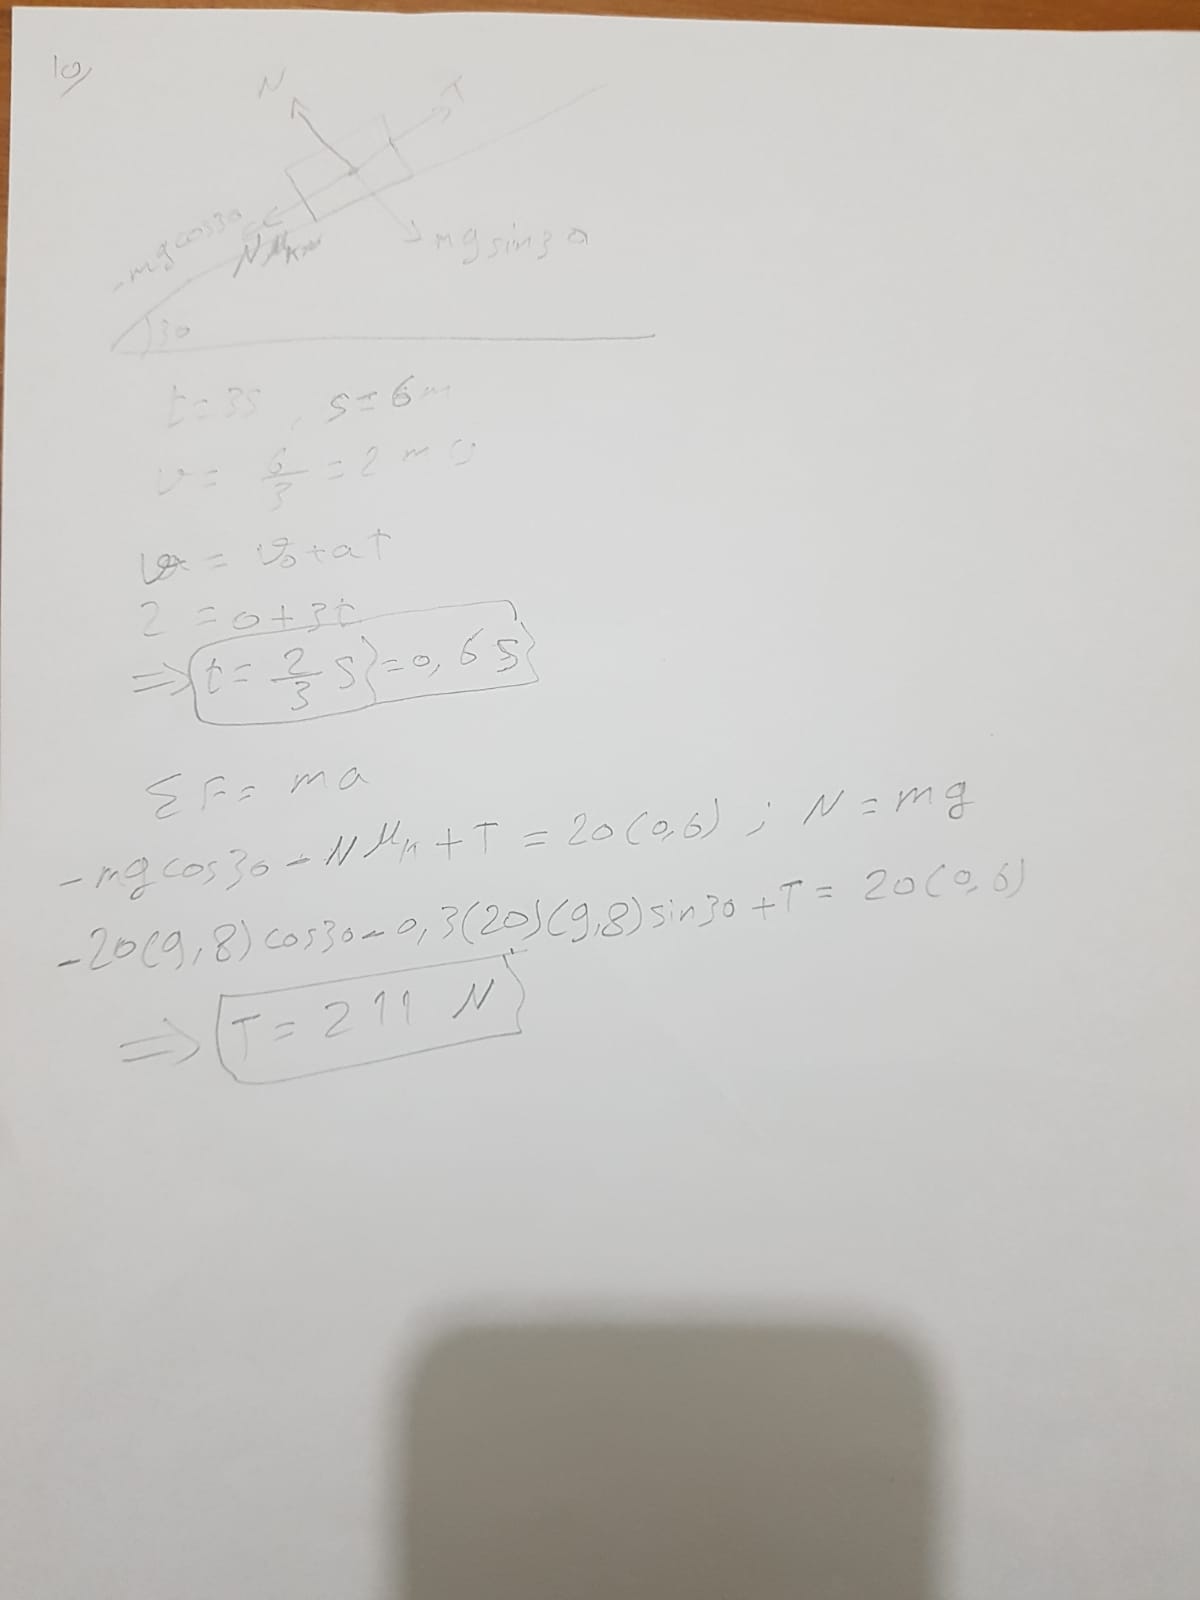 10)
N
T
-mg cos30
Nμk
mg sin30
30
t=3s, s=6m
v= 6/3 =2 m
v = v₀+at
2 =0+3t
⇒ t= 2/3 s =0,6 s
ΣF= ma
-mg cos30-Nμk+T = 20(0,6) ; N=mg
-20(9,8) cos30-0,3(20)(9,8) sin30+T= 20(0,6)
⇒ T= 211 N